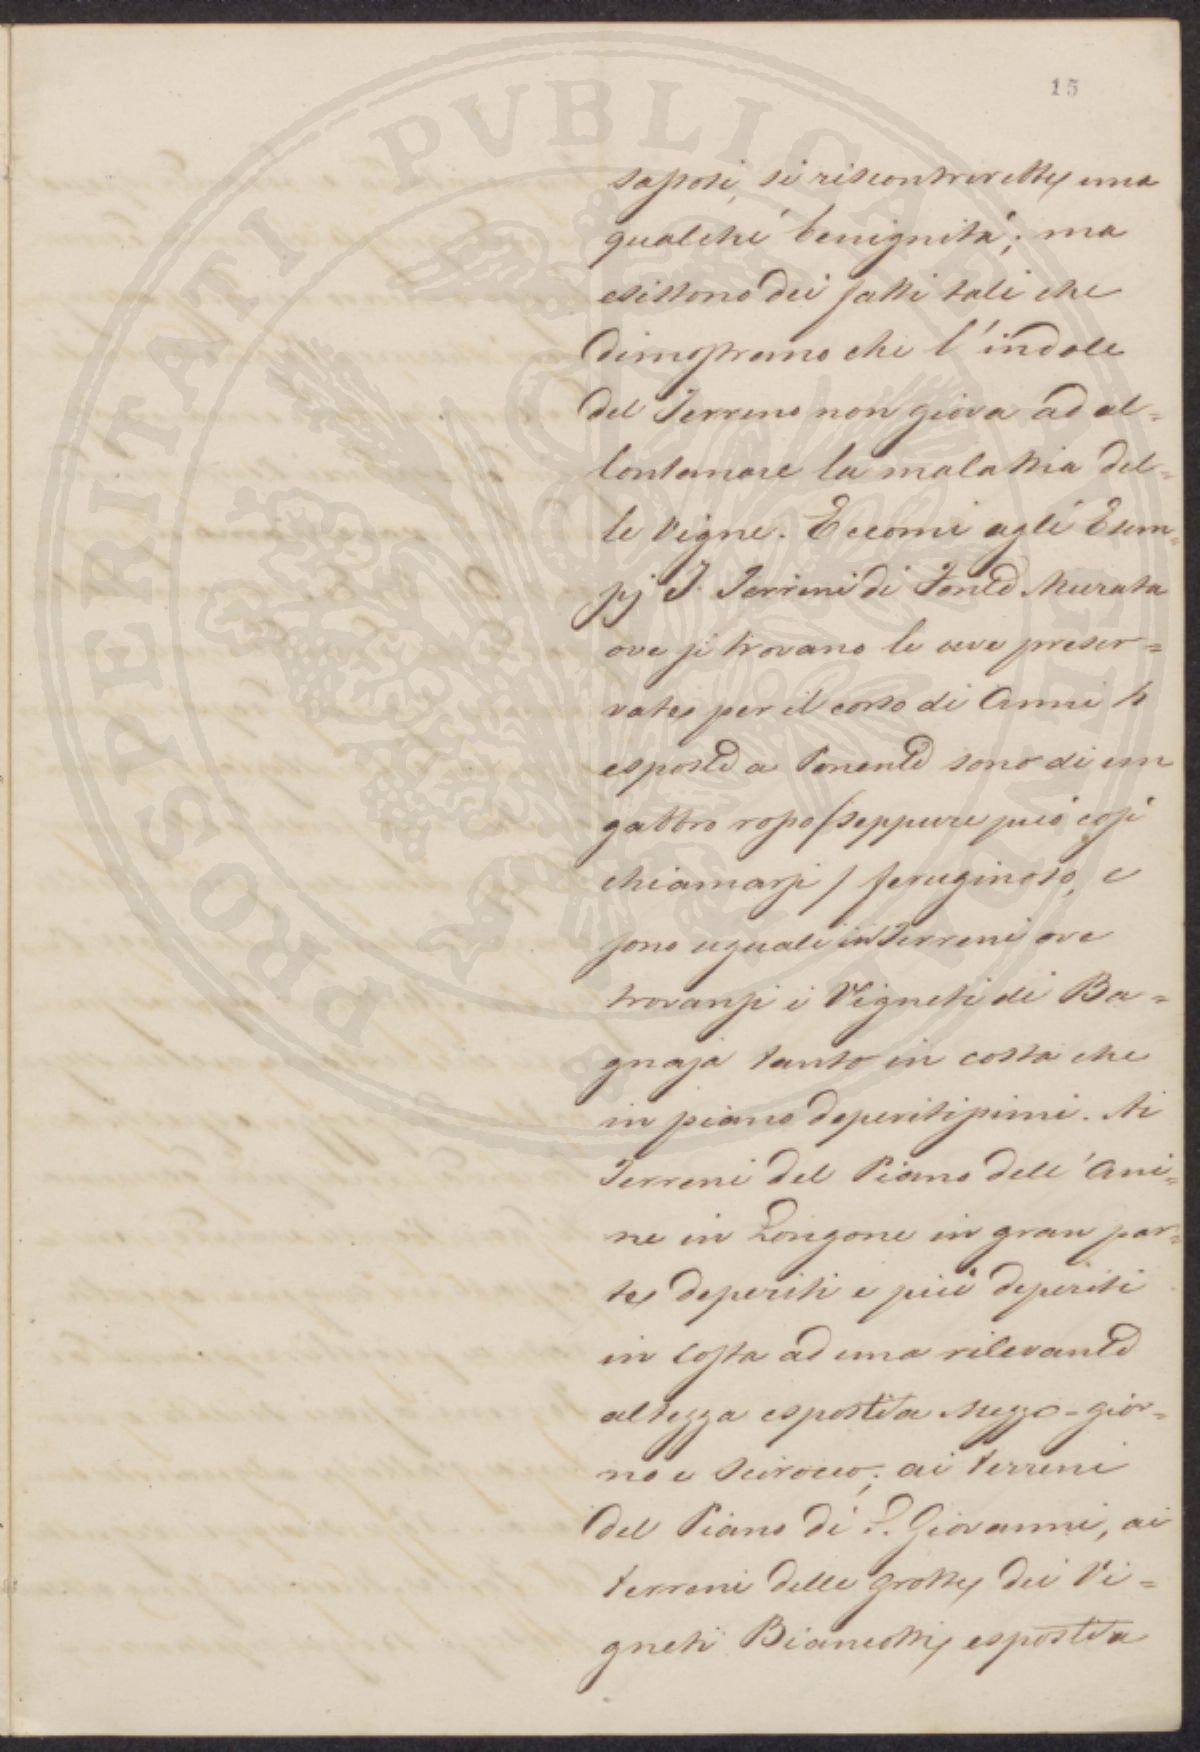 15
sassosi, si riscontrerebbe una
qualche benignità; ma
esistono dei fatti tali che
dimostrano che l'indole
del Terreno non giova ad al=
lontanare la malattia del=
le Vigne. Eccomi agli Esem=
pj I. Terreni di Fonte Murata
ove si trovano le uve preser=
vate per il corso di Anni 4
esposte a Ponente sono di un
gabbro rosso / seppure può così
chiamarsi / feruginoso, e
sono uguali in Terreni ove
trovansi i Vigneti di Ba=
gnaja tanto in costa che
in piano deperitissimi. Ai
Terreni del Piano dell'Ani=
ne in Longone in gran par=
te deperiti e più deperiti
in costa ad una rilevante
altezza esposti a Mezzo-gior=
no e Scirocco; ai terreni
del Piano di S. Giovanni, ai
terreni delle grotte dei Vi=
gneti Biancotti esposti a
PROSPERITATI PVBLICAE